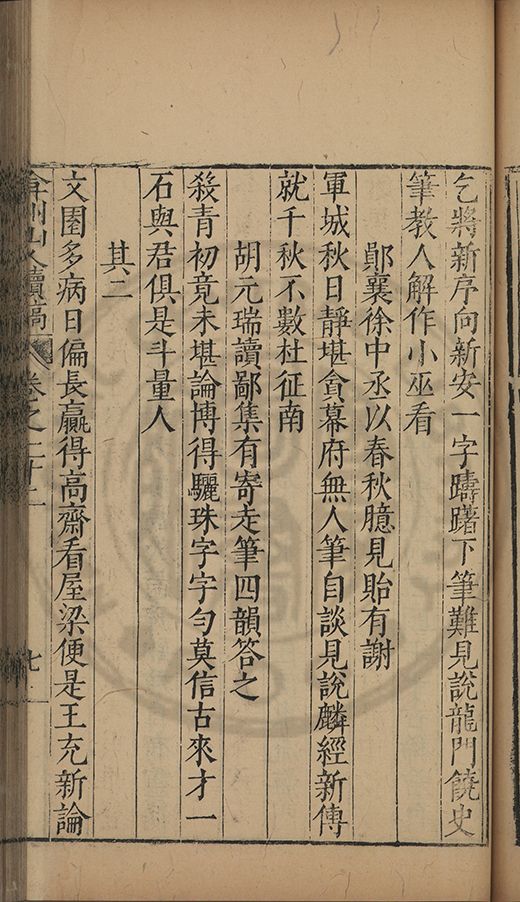 乞將新序向新安一字躊躇下筆難見說龍門饒史
筆教人解作小巫看
鄖襄徐中丞以春秋臆見貽有謝
軍城秋日靜堪貪幕府無人筆自談見說麟經新傳
就千秋不數杜征南
胡元瑞讀鄙集有寄走筆四韻答之
殺青初竟未堪論博得驪珠字字勻莫信古來才一
石與君俱是斗量人
其二
文園多病日偏長贏得高齋看屋梁便是王充新論
弇州山人續稿 卷之二十二 七